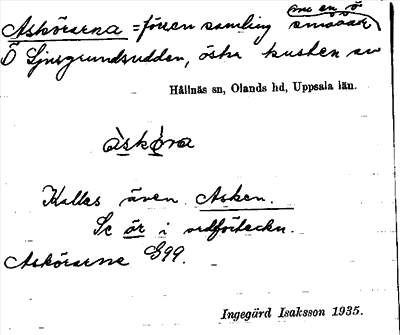 Askörarna = förr en samling småöar, nu en ö
Ö Ljusgrundsudden, östra kusten av
Hållnäs sn, Olands hd, Uppsala län.
àskö̀ra
Kallas även Asken.
Se ör i ordförteckn.
Askörarne G99.
Ingegärd Isaksson 1935.